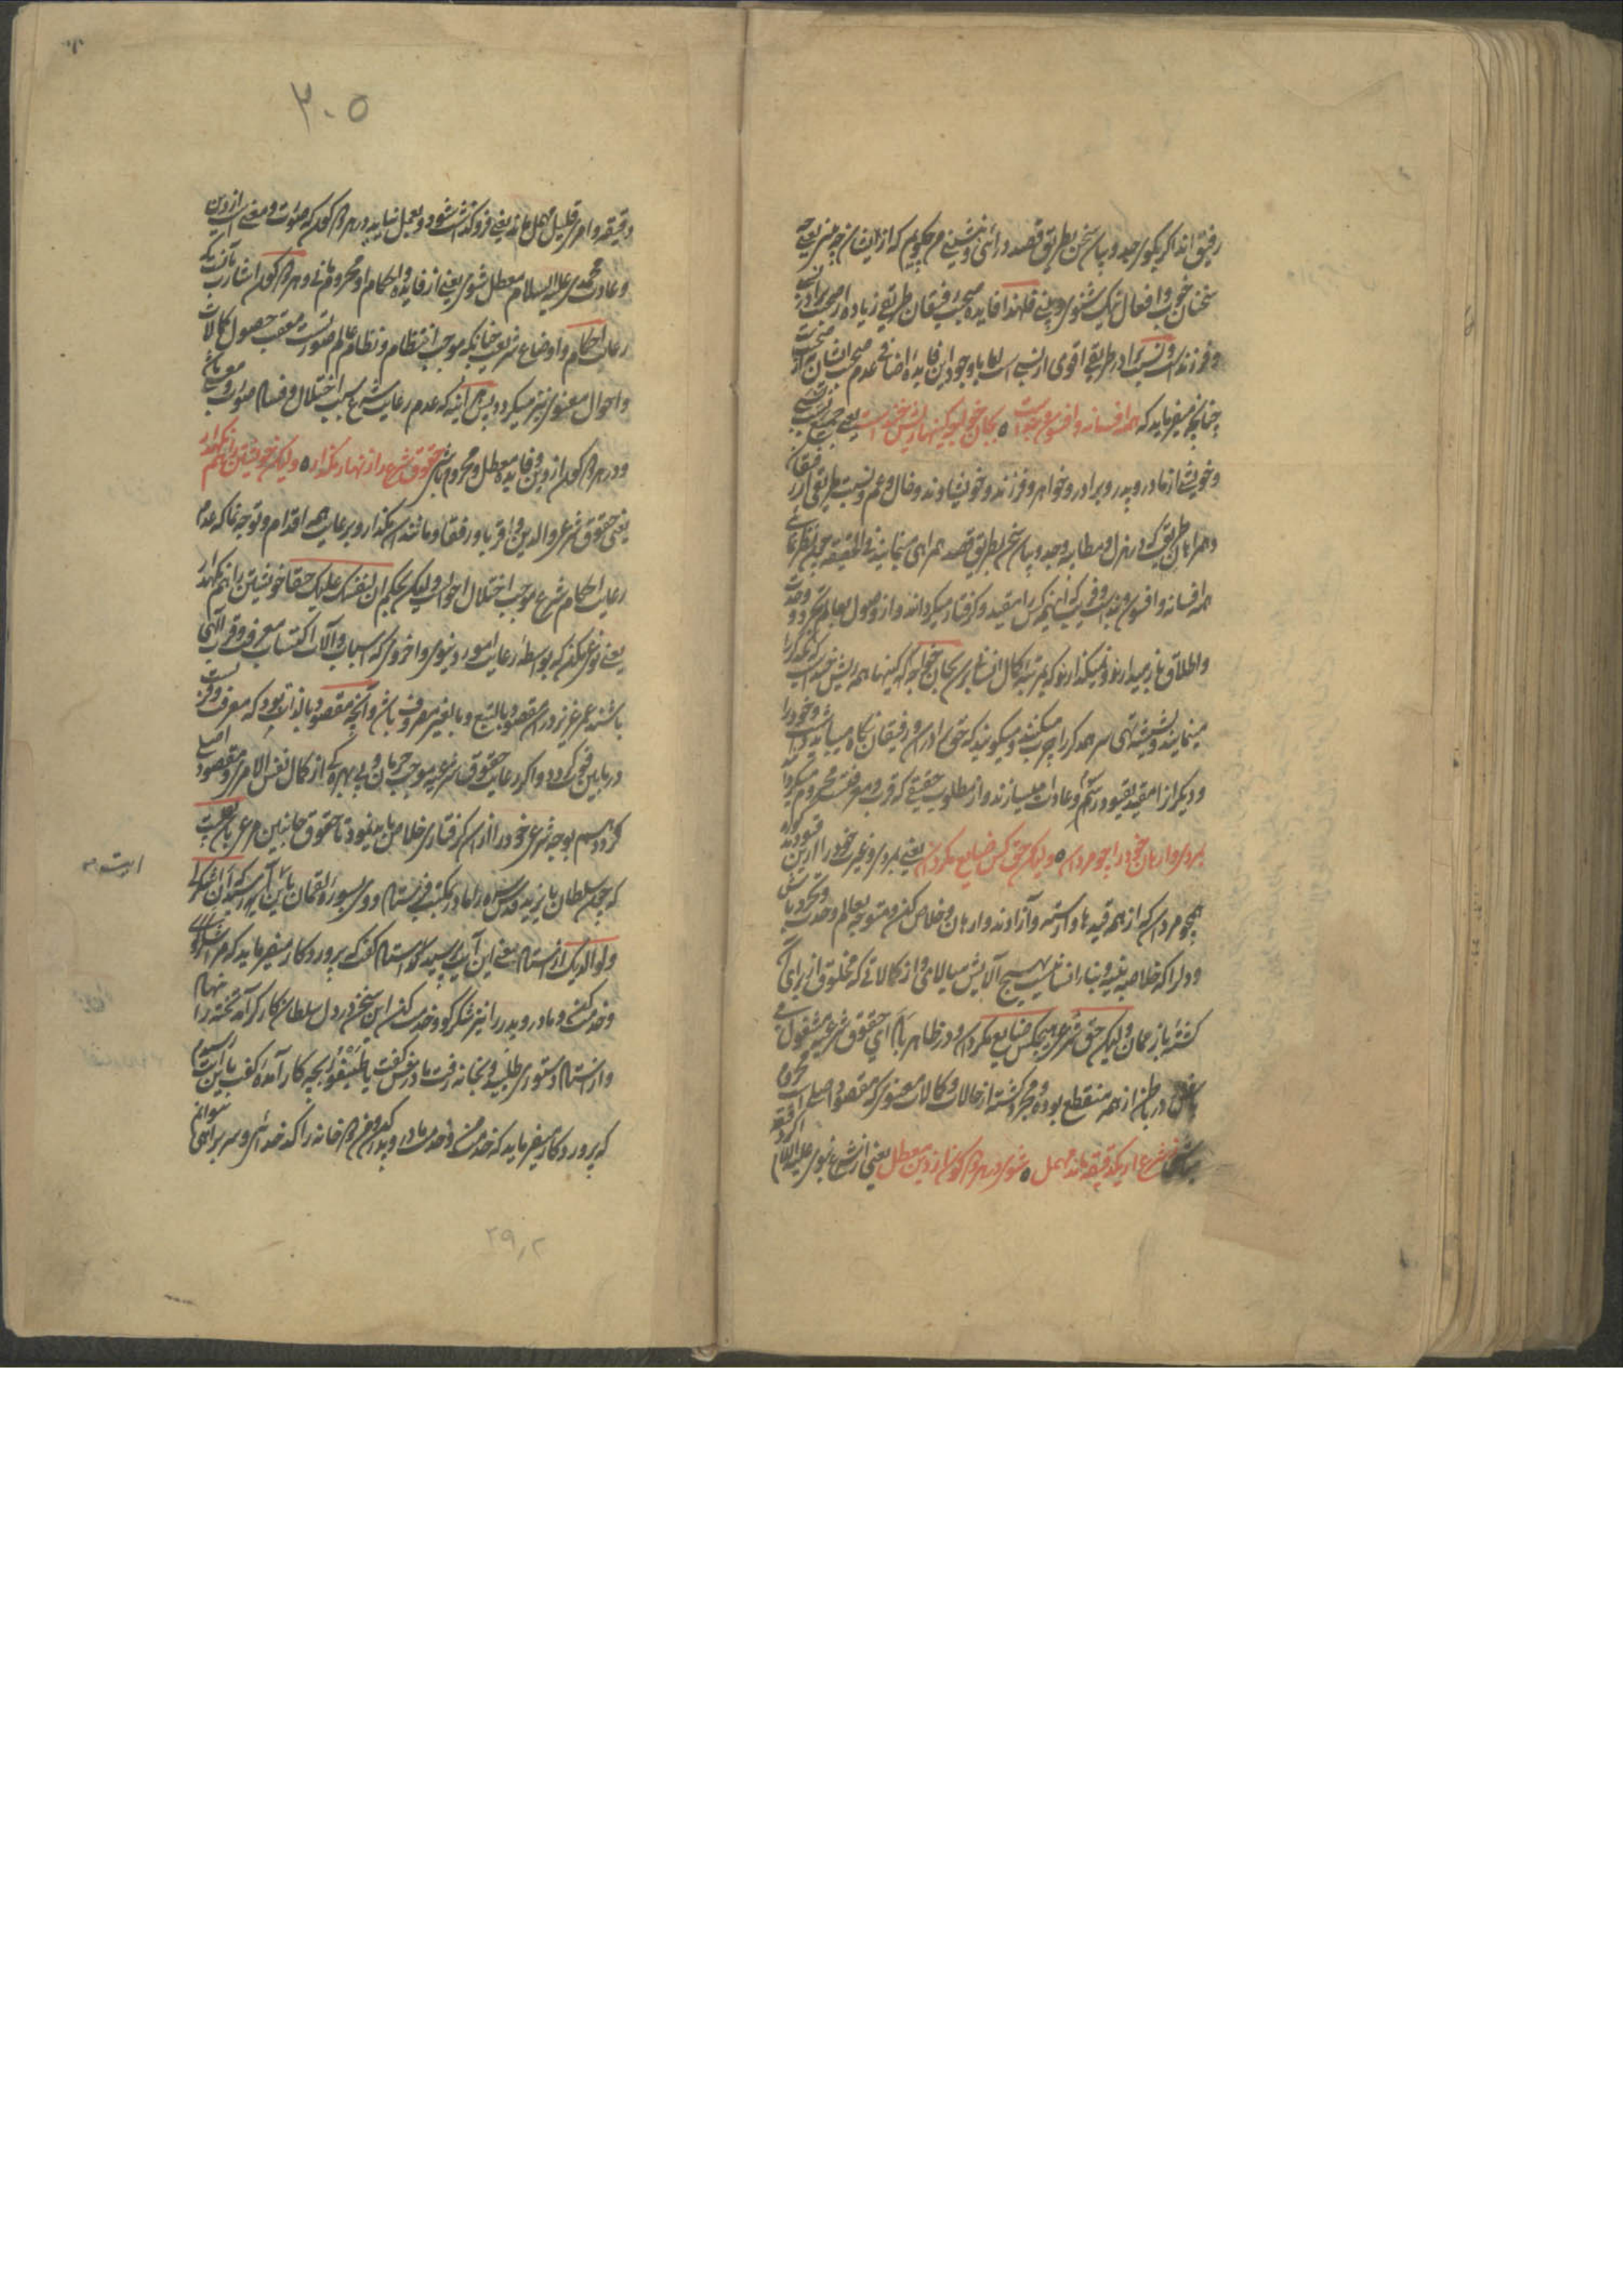 رفیق اندا کر بکوی جد و بیان سخن بطریق قصد در آئی و شنینی چگویم که از ایشان چه میز یعنی
سخنان خوب و افعال نیک شنوی و بینی فلهذا فایده صحبت رفیقان طریق زیاده از صحبت برادر
و فرزند است و نسبت برادر طریق اقوی از نسبی است اما با وجود این فایده اضافی عدم صحبت ایشان
چنانچه میفرماید که همه افسانه و افسوس و بند است ه بجان خواجه کینها ریش خند است یعنی جمیع نسبت نسبی
و خویشی از مادر و پدر و برادر و خواهر و فرزند و خویشاوند و خال و عم و نسبت طریقی از رفیقان
و همراهان طریق که در هزل و مطایبه و جد و بیان سخن بطریق قصد همراهی مینمایند فی الحقیقه
همه افسانه و افسون و بند است و فریب که اینکس را مقید و گرفتار میگرداند و از وصول بعالم تجرد و وحدت
و اطلاق باز میدارند و نمیگذارند که بمرتبه کمال انسانی بجان خواجه که اینها همه ریش خند است که بیکدیگر
مینمایند و بشیشه تهی سر همدیگر را چرب میکنند و میگویند که حقوق برادری و رفیقان نگاه میباید داشت و خود را
و دیگر از امقید بقیود رسم و عادات میسازند و از مطلوب حقیقی که قرب و معرفتست محروم میگردانند
بمردی وارهان خود را چو مردان ه ولیکن حق کس ضایع مگردان یعنی بمردی و غیرت خود را ازین قیود
همچو مردان که از همه قید ها وارسته و آزادند وارهان و خلاص کن و متوجه بعالم وحدت و تجرد باش
و دل را که خلاصه بنیه و بنای انسانیست بهیچ آلایش میالای و از کمالاتی که مخلوق از برای آن
گشته باز ممان ولیکن حق شرعی هیچکس ضایع مگردان و در ظاهر با ادای حقوق شرعیه مشغول
باش و در باطن از همه منقطع بوده و مجرد گشته از حالات و کمالات معنوی که مقصود اصلی است محروم
مباش ز شرع ار یک دقیقه ماند مهمل ه شوی در هر دو کون از دین معطل یعنی از شرع نبوی علیه السلام اگر دقیقه
۳۰۵
دقیقه و امر قلیل مهمل ماند یعنی فروگذاشت شود و بعمل نیاید در هر دو کون که صورت و معنی است از دین
و عادت محمدی علیه السلام معطل شوی یعنی از فایده و احکام او محروم مانی و هر دو کون اشارت بآنست که
رعایت احکام و اوضاع شریعت چنانکه موجب انتظام و نظام عالم صورتست معقب حصول کمالات
و احوال معنوی نیز میگردد پس هر آینه که عدم رعایت شرع سبب اختلال و فساد صورت و معنی باشد
و در هر دو کون از دین و فایده معطل و محروم باشی حقوق شرع را زنهار مگذار ه ولیکن خویشتن را هم نگهدار
یعنی حقوق شرعی والدین و اقربا و رفقا و مانند این مگذار و بر رعایت همه اقدام و توجه نما که عدم
رعایت احکام شرع موجب اختلال احوال است ولیکن بحکم ان لنفسک علیک حقا خویشتن را هم نگهدار
یعنی نوعی مکن که بواسطه رعایت امور دنیوی و اخروی که اسباب و آلات اکتساب معرفت و قرب الهی
باشند عمر عزیز در آن مقصود بالتبع و بالغیر مصروف باشد و آنچه مقصود بالذات بود که معرفت و قربست
در مابین فوت گردد و اگر رعایت حقوق شرعیه موجب حرمان و بی بهرگی از کمال نفس الامری و مقصود اصلی
گردد هم بوجه شرعی خود را از آن گرفتاری خلاص باید نمود تا حقوق جانبین مرعی باشد نقلست
که چون سلطان بایزید قدس سره را مادر بمکتب فرستاد و در سوره لقمان باین آیه رسید که ان اشکر لی
ولوالدیک از استاد معنی این آیه پرسید استاد گفت که پروردگار میفرماید که مرا شکر گوی
و خدمت کن و مادر و پدر را نیز شکر گو و خدمت کن این سخن در دل سلطان کار کرد تخته را بنهاد
و از استاد دستوری طلبید و بخانه رفت مادرش گفت یا طیفور بچه کار آمده گفت باین آیت رسیدم
که پروردگار میفرماید که خدمت من و خدمت مادر و پدر کن و من در دو خانه را کدخدائی و سربراهی نتوانم
۲۹۰۲